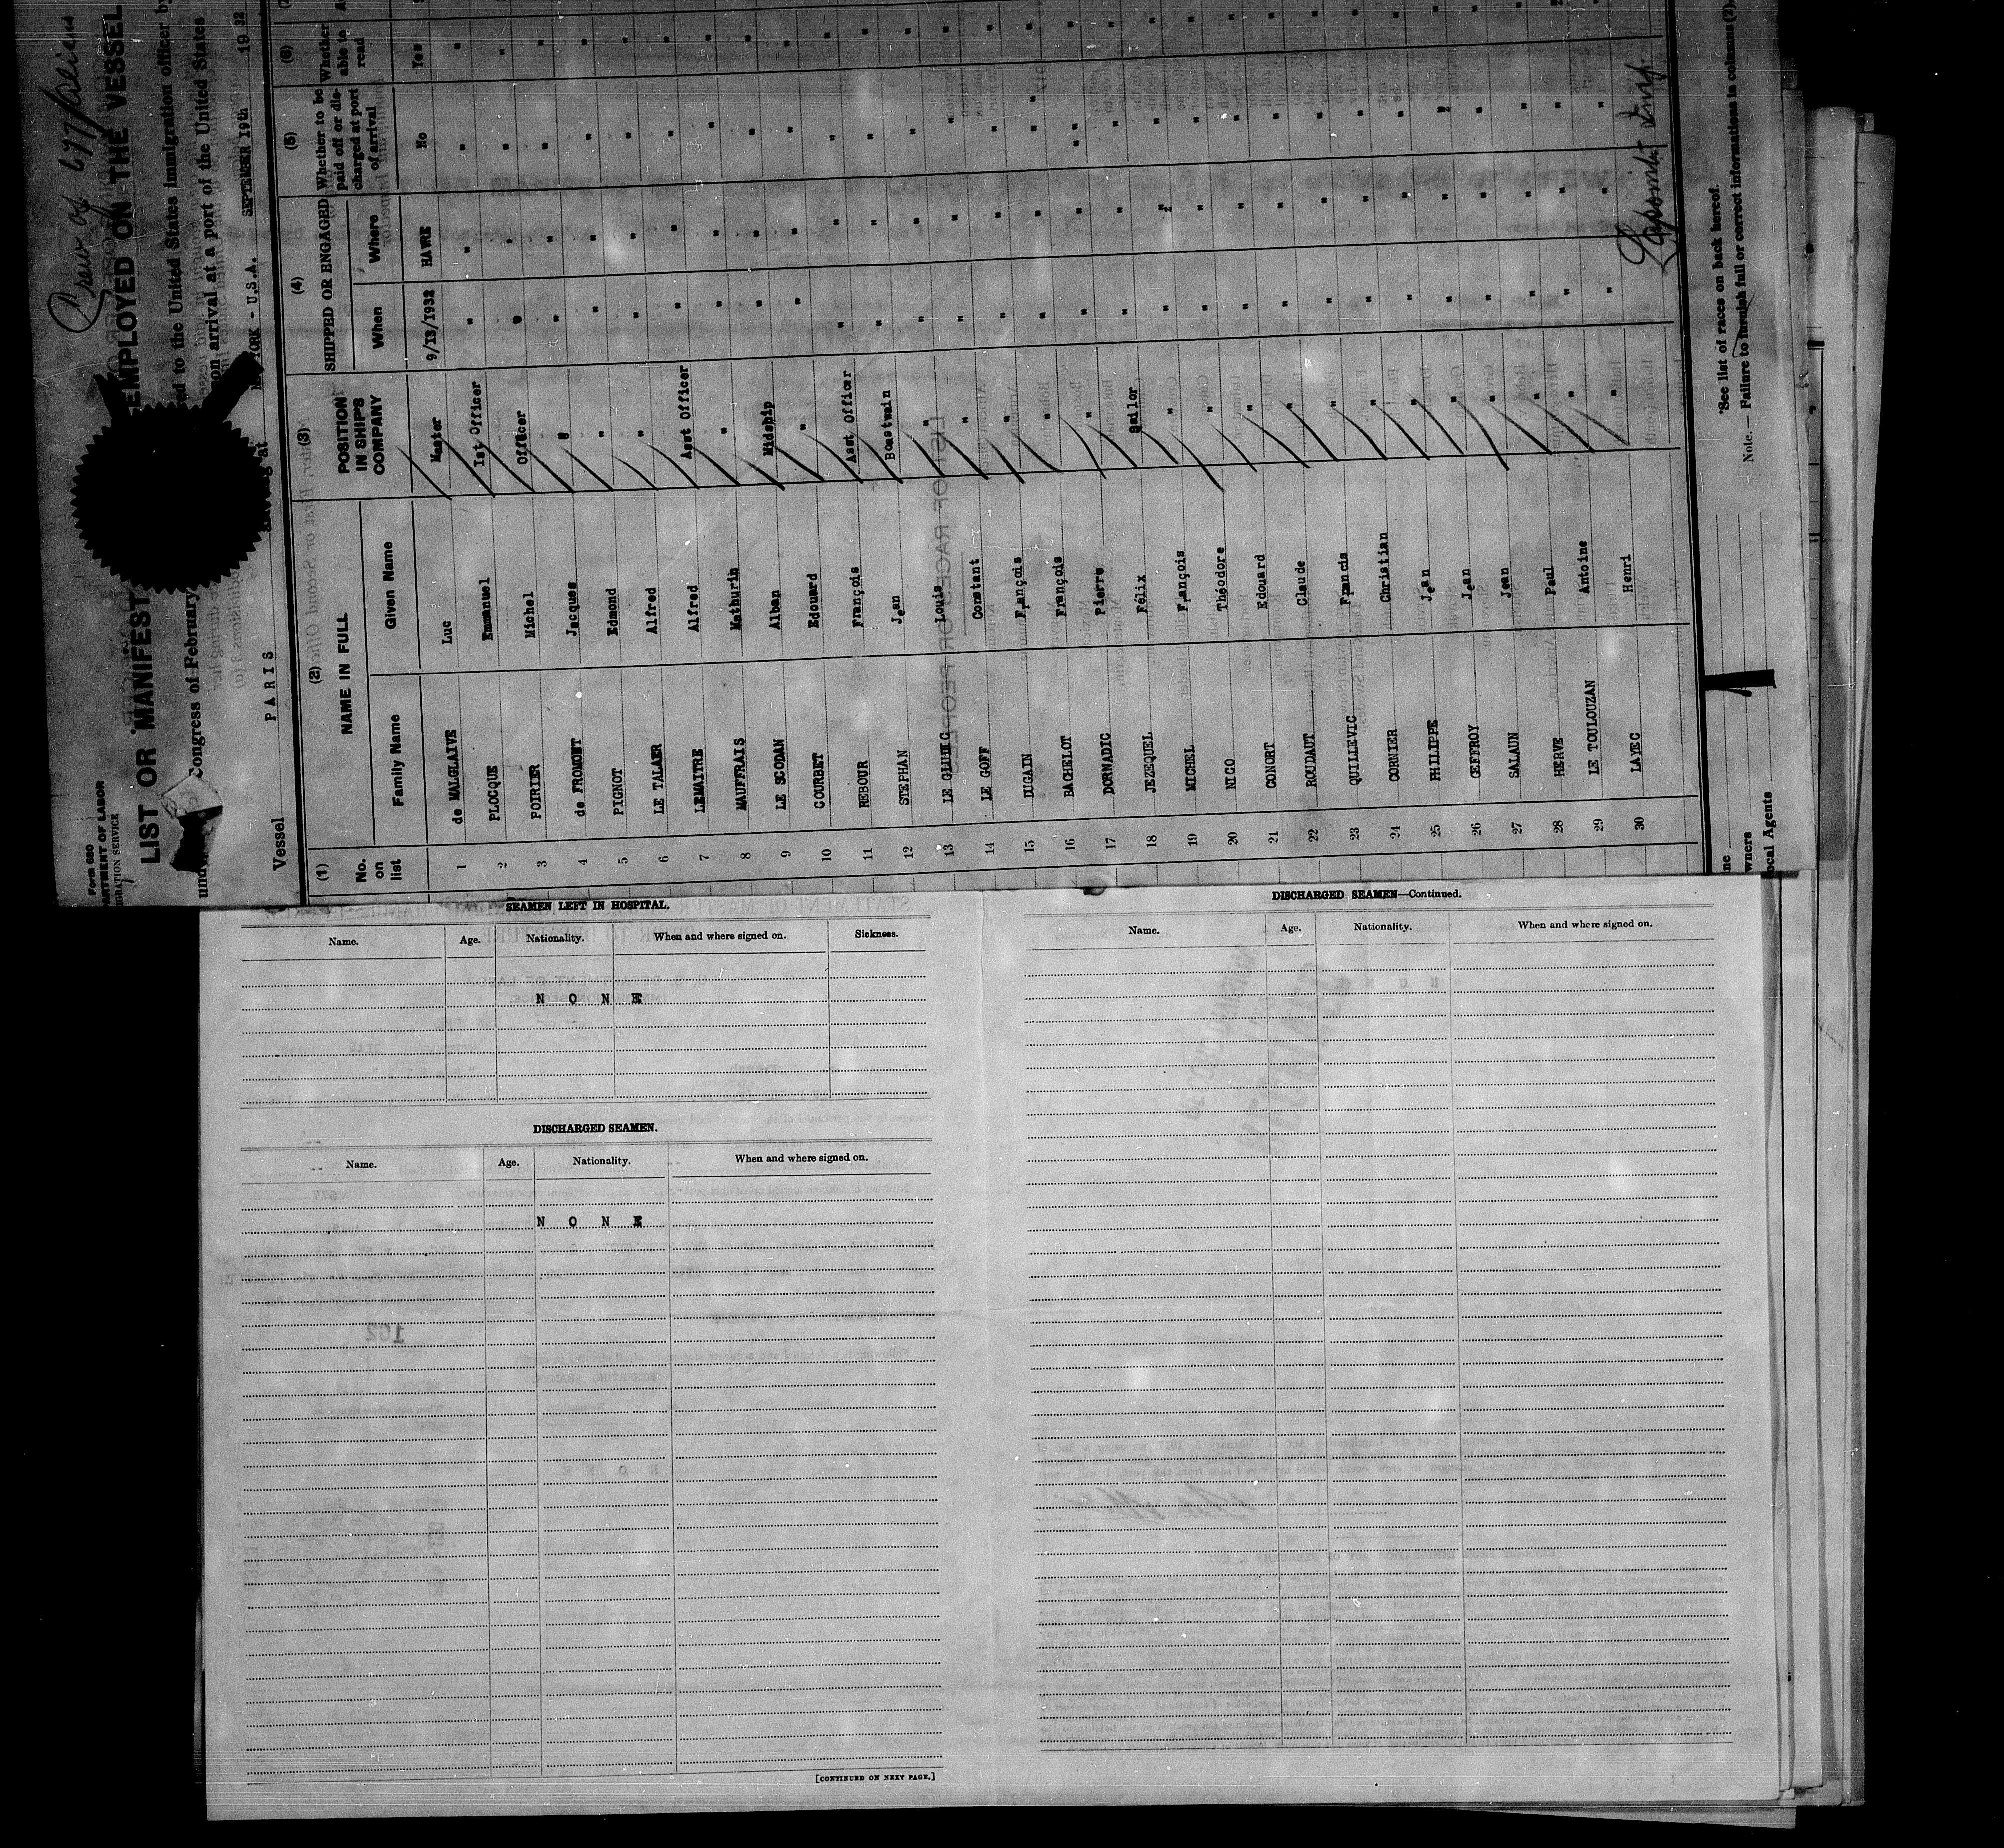 Crew of 677 Aliens
Form 680
LIST OR MANIFEST
EMPLOYED ON THE VESSEL
ed to the United States immigration officer by
Congress of February
on arrival at a port of the United States
Vessel PARIS
at
YORK - U.S.A. SEPTEMBER 19th 1932
(1) (2) (3) (4) (5) (6)
No. on list
NAME IN FULL
Family Name Given Name
POSITION IN SHIP'S COMPANY
SHIPPED OR ENGAGED
When Where
Whether to be paid off or discharged at port of arrival
Whether able to read
1 de MALGLAIVE Luc Master 9/13/1932 HAVRE No Yes
2 PLOCQUE Emmanuel 1st Officer " " " "
3 POIRIER Michel Officer " " " "
4 de FROMONT Jacques " " " " "
5 PIGNOT Edmond " " " " "
6 LE TALAER Alfred " " " " "
7 LEMAITRE Alfred Asst Officer " " " "
8 MAUFFRAIS Mathurin " " " " "
9 LE SCODAN Alban Midship " " " "
10 COURBET Edouard " " " " "
11 REBOUR François Asst Officer " " " "
12 STEPHAN Jean Boastwain " " " "
13 Louis " " " " "
14 LE GOFF Constant " " " " "
15 DUGAIN François " " " " "
16 BACHELOT François " " " " "
17 DORNADIC Pierre " " " " "
18 JEZEQUEL Félix Sailor " " " "
19 MICHEL François " " " " "
20 NICO Théodore " " " " "
21 CONGRT Edouard " " " " "
22 ROUDAUT Claude " " " " "
23 QUILLEVIC Francis " " " " "
24 CORNIER Christian " " " " "
25 PHILIPPE Jean " " " " "
26 ŒFFROY Jean " " " " "
27 SALAUN Jean " " " " "
28 HERVE Paul " " " " "
29 LE TOULOUZAN Antoine " " " " "
30 LAVEC Henri
*See list of races on back hereof.
Note.— Failure to furnish full or correct informations in columns (2),
SEAMEN LEFT IN HOSPITAL.
Name. Age. Nationality. When and where signed on. Sickness.
NONE
DISCHARGED SEAMEN.
Name. Age. Nationality. When and where signed on.
NONE
[CONTINUED ON NEXT PAGE.]
DISCHARGED SEAMEN—Continued.
Name. Age. Nationality. When and where signed on.